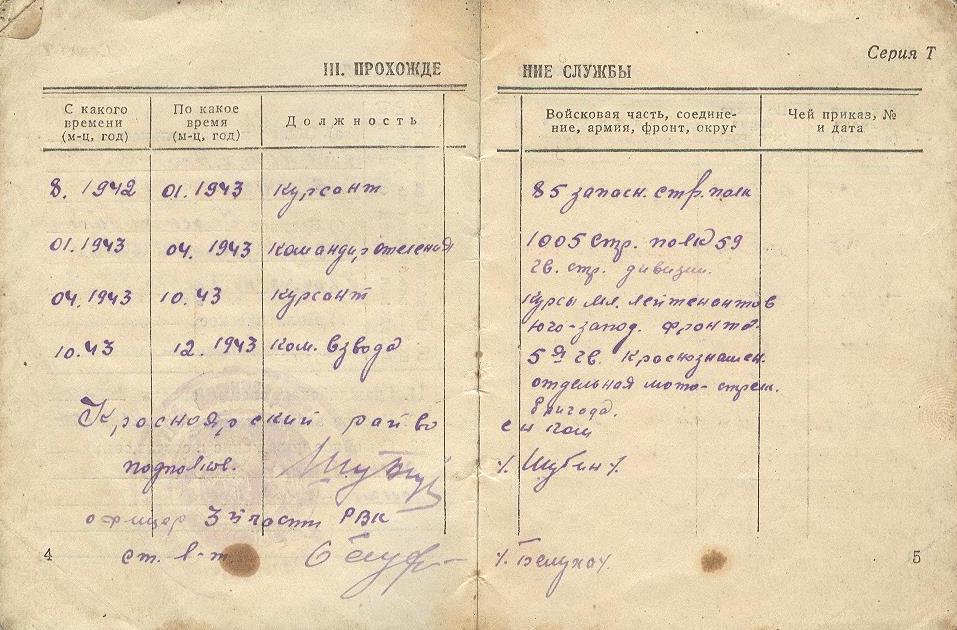 Серия Т
III. ПРОХОЖДЕНИЕ СЛУЖБЫ
С какого времени (м-ц, год) По какое время (м-ц, год) Должность Войсковая часть, соедине-ние, армия, фронт, округ Чей приказ, № и дата
8. 1942 01. 1943 Курсант 85 запасн. стр. полк
01.1943 04. 1943 Командир отделения 1005 стр. полк 59
гв. стр. дивизии.
04.1943 10.43 Курсант Курсы мл. лейтенантов
Юго-запад. фронта.
10.43 12. 1943 Ком. взвода 5я гв. Краснознамен.
отдельная мото-стрелк.
бригада.
Красноярский райво
подполков. /Шубин/.
офицер 3й части РВК
ст. л-т. /Белуха/.
4 5